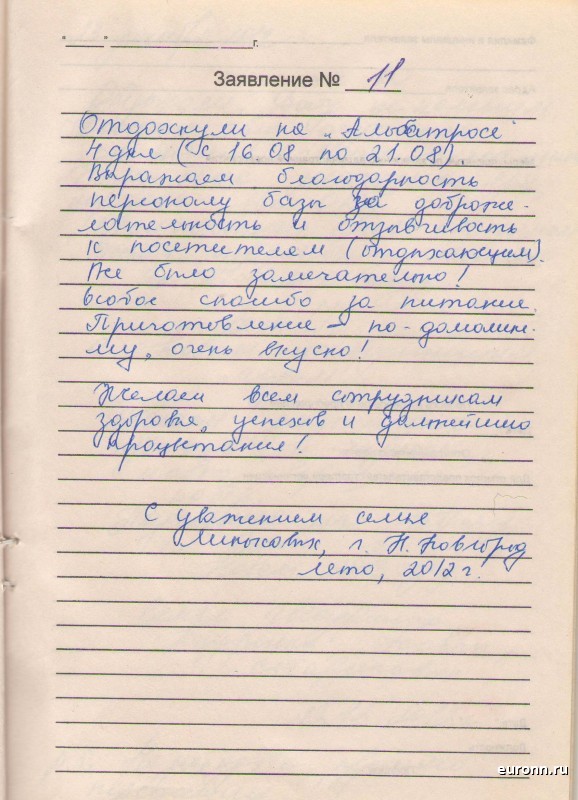 "____" ________________ ____г.
Заявление № 11
Отдохнули на „Альбатросе"
4 дня (с 16.08 по 21.08).
Выражаем благодарность
персоналу базы за доброже-
лательность и отзывчивость
к посетителям (отдыхающим).
Все было замечательно!
Особое спасибо за питание.
Приготовление – по-домашне-
му, очень вкусно!
Желаем всем сотрудникам
здоровья, успехов и дальнейшего
процветания!
С уважением семья
г. Н. Новгород
лето, 2012 г.
euronn.ru